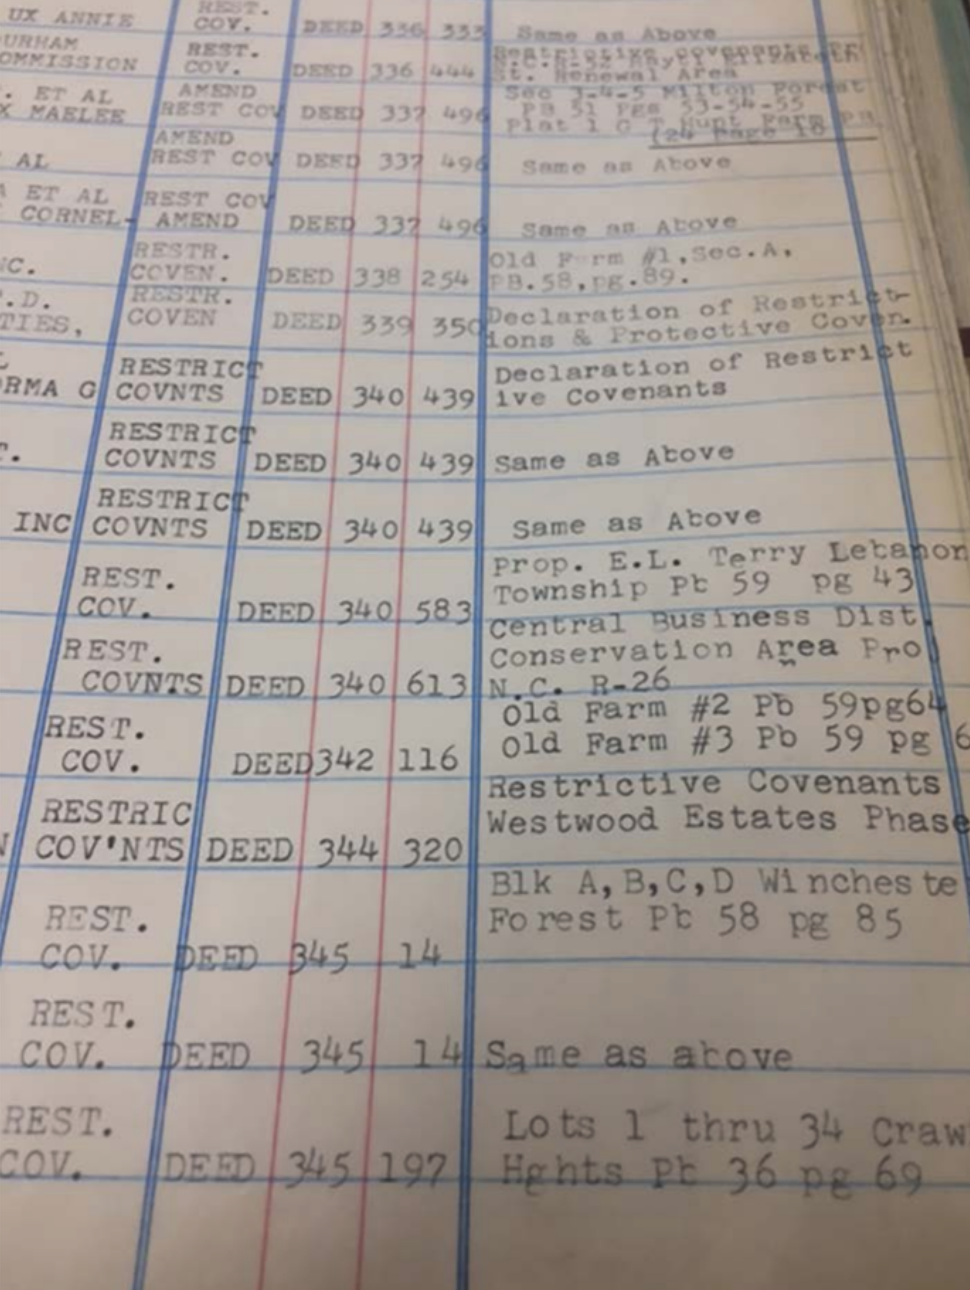 UX ANNIE REST. COV. DEED 336 333 Same as Above
DURHAM REST. Restrictive covenants
OMMISSION COV. DEED 336 444 St. Renewal Area
. ET AL AMEND Sec 3-4-5 Milton Forest
X MAELEE REST COV DEED 337 496 PB 51 Pgs 53-54-55
Plat 1 G T Hunt Farm
AMEND
AL REST COV DEED 337 496 Same as Above
A ET AL REST COV
CORNEL- AMEND DEED 337 496 Same as Above
RESTR. Old Farm #1,Sec.A,
NC. COVEN. DEED 338 254 PB.58,pg.89.
.D. RESTR. Declaration of Restrict-
TIES, COVEN DEED 339 350 ions & Protective Coven.
RESTRICT Declaration of Restrict
ORMA G COVNTS DEED 340 439 ive Covenants
RESTRICT
T. COVNTS DEED 340 439 Same as Above
RESTRICT
INC COVNTS DEED 340 439 Same as Above
REST. Prop. E.L. Terry Lebanon
COV. DEED 340 583 Township Pb 59 pg 43
REST. Central Business Dist.
Conservation Area Pro
COVNTS DEED 340 613 N.C. R-26
REST. Old Farm #2 Pb 59pg64
COV. DEED 342 116 Old Farm #3 Pb 59 pg 6
RESTRIC Restrictive Covenants
COV'NTS DEED 344 320 Westwood Estates Phase
Blk A,B,C,D Wincheste
REST. Forest Pb 58 pg 85
COV. DEED 345 14
REST.
COV. DEED 345 14 Same as above
REST. Lots 1 thru 34 Craw
COV. DEED 345 197 Hghts Pb 36 pg 69